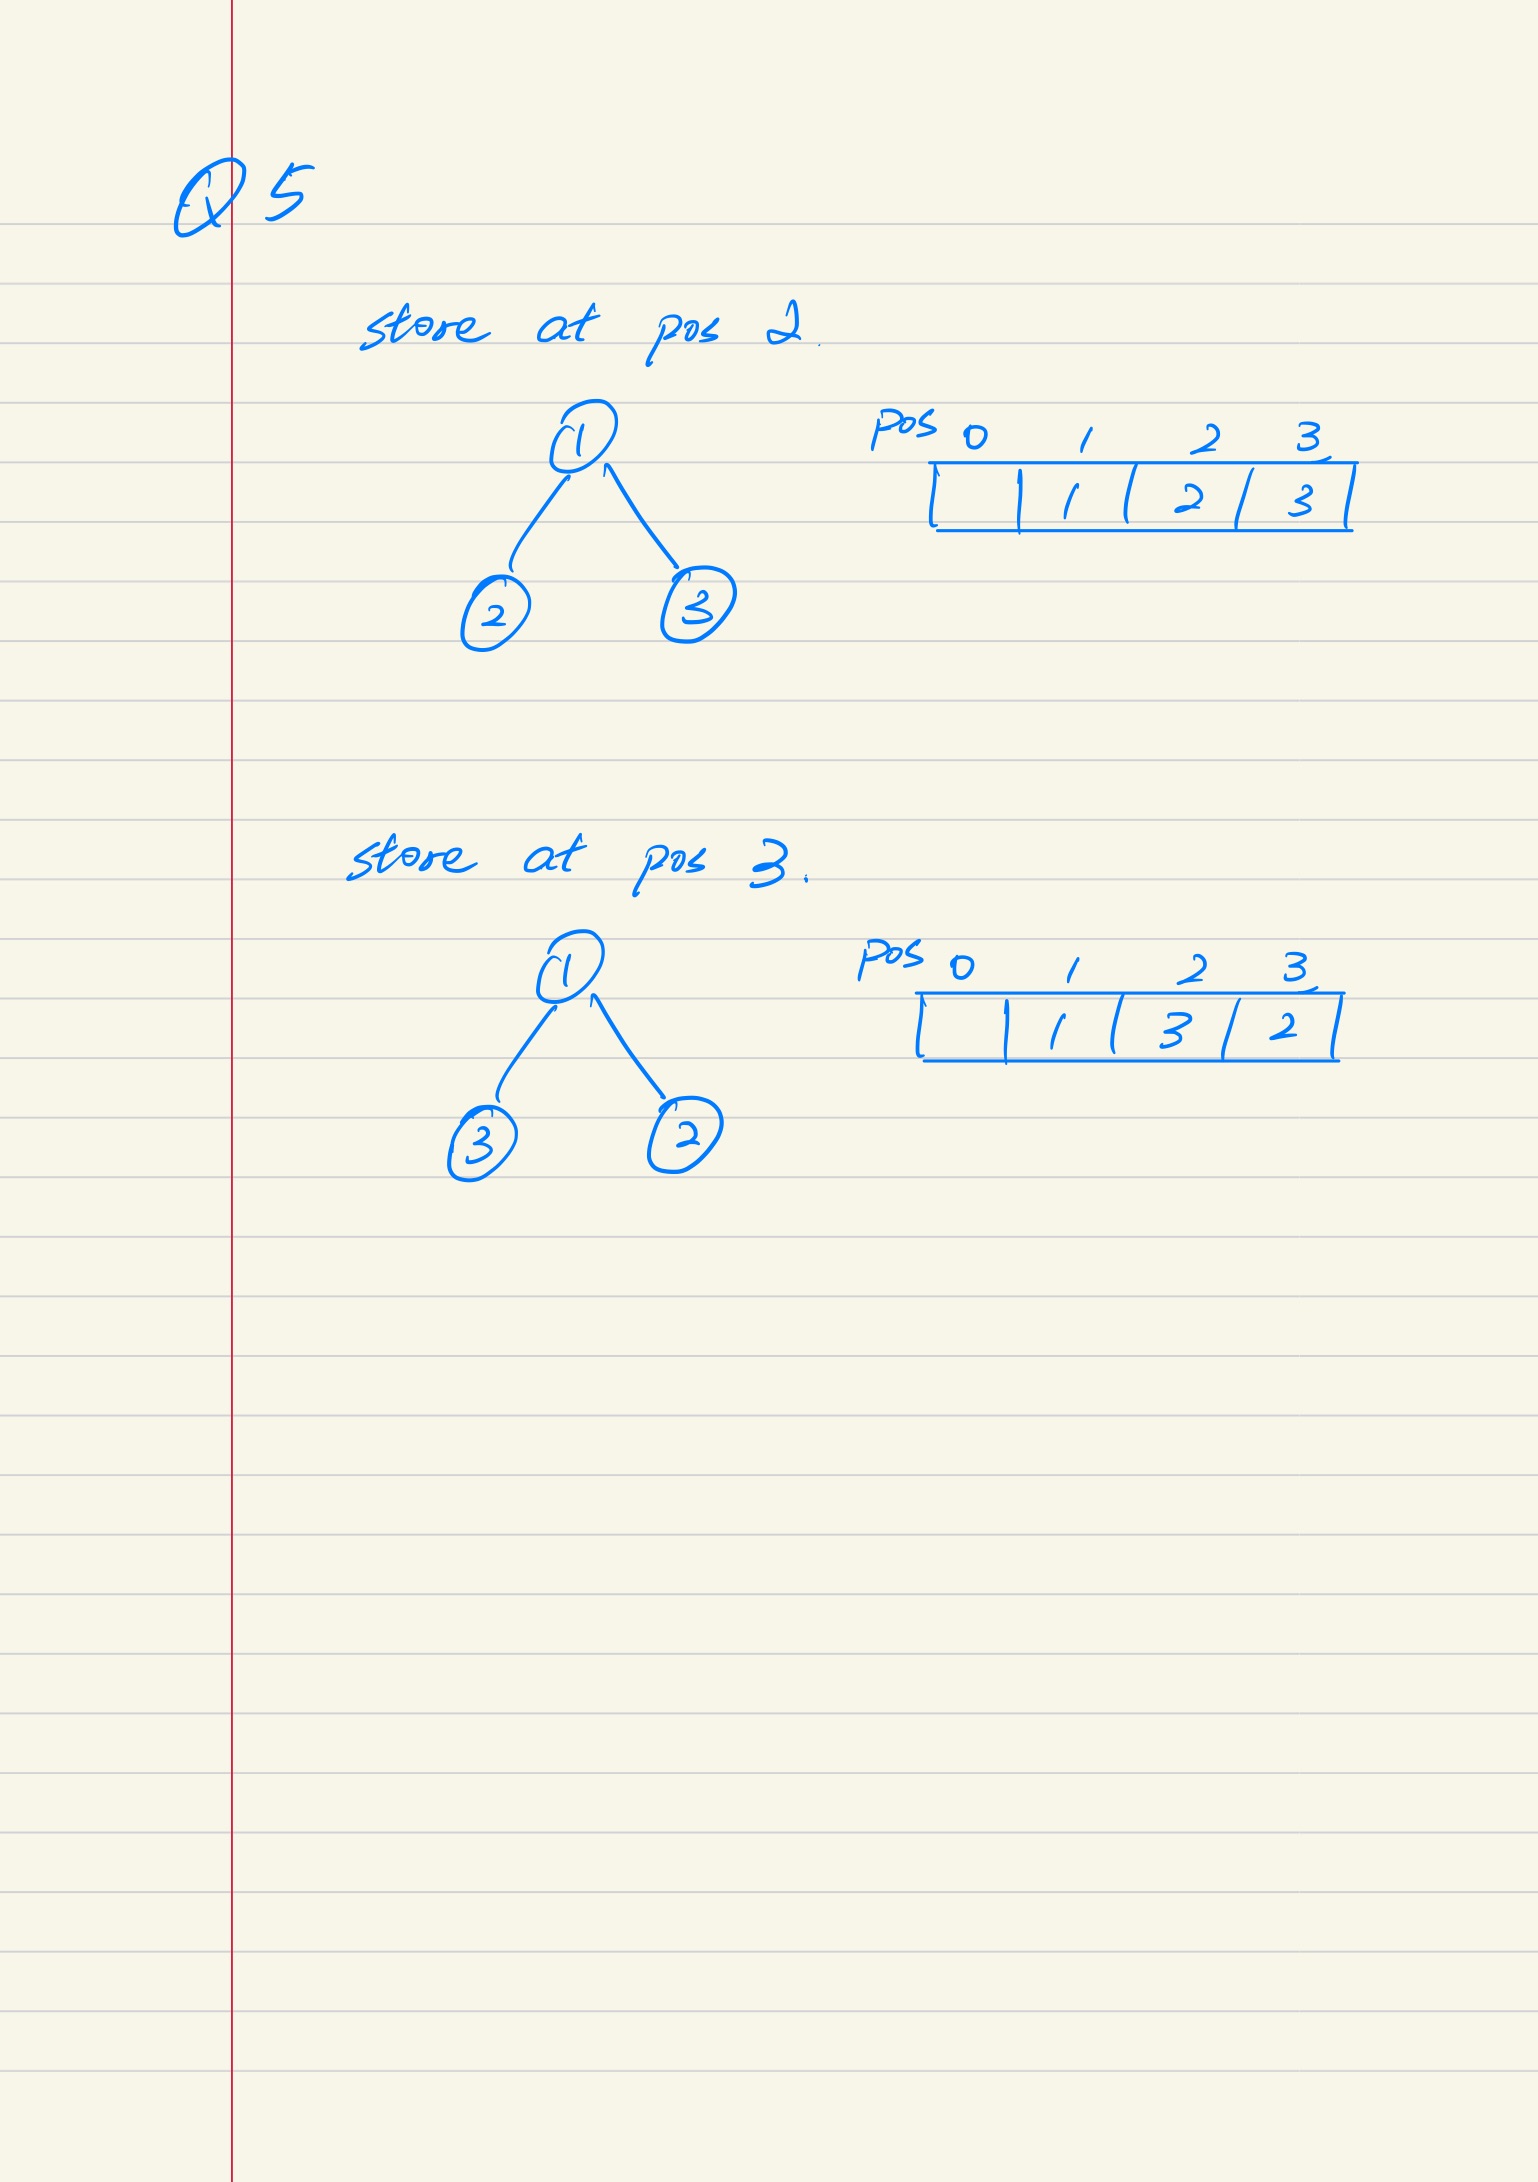 Q5
store at pos 2.
1
2 3
pos 0 1 2 3
1 2 3
store at pos 3.
1
3 2
pos 0 1 2 3
1 3 2